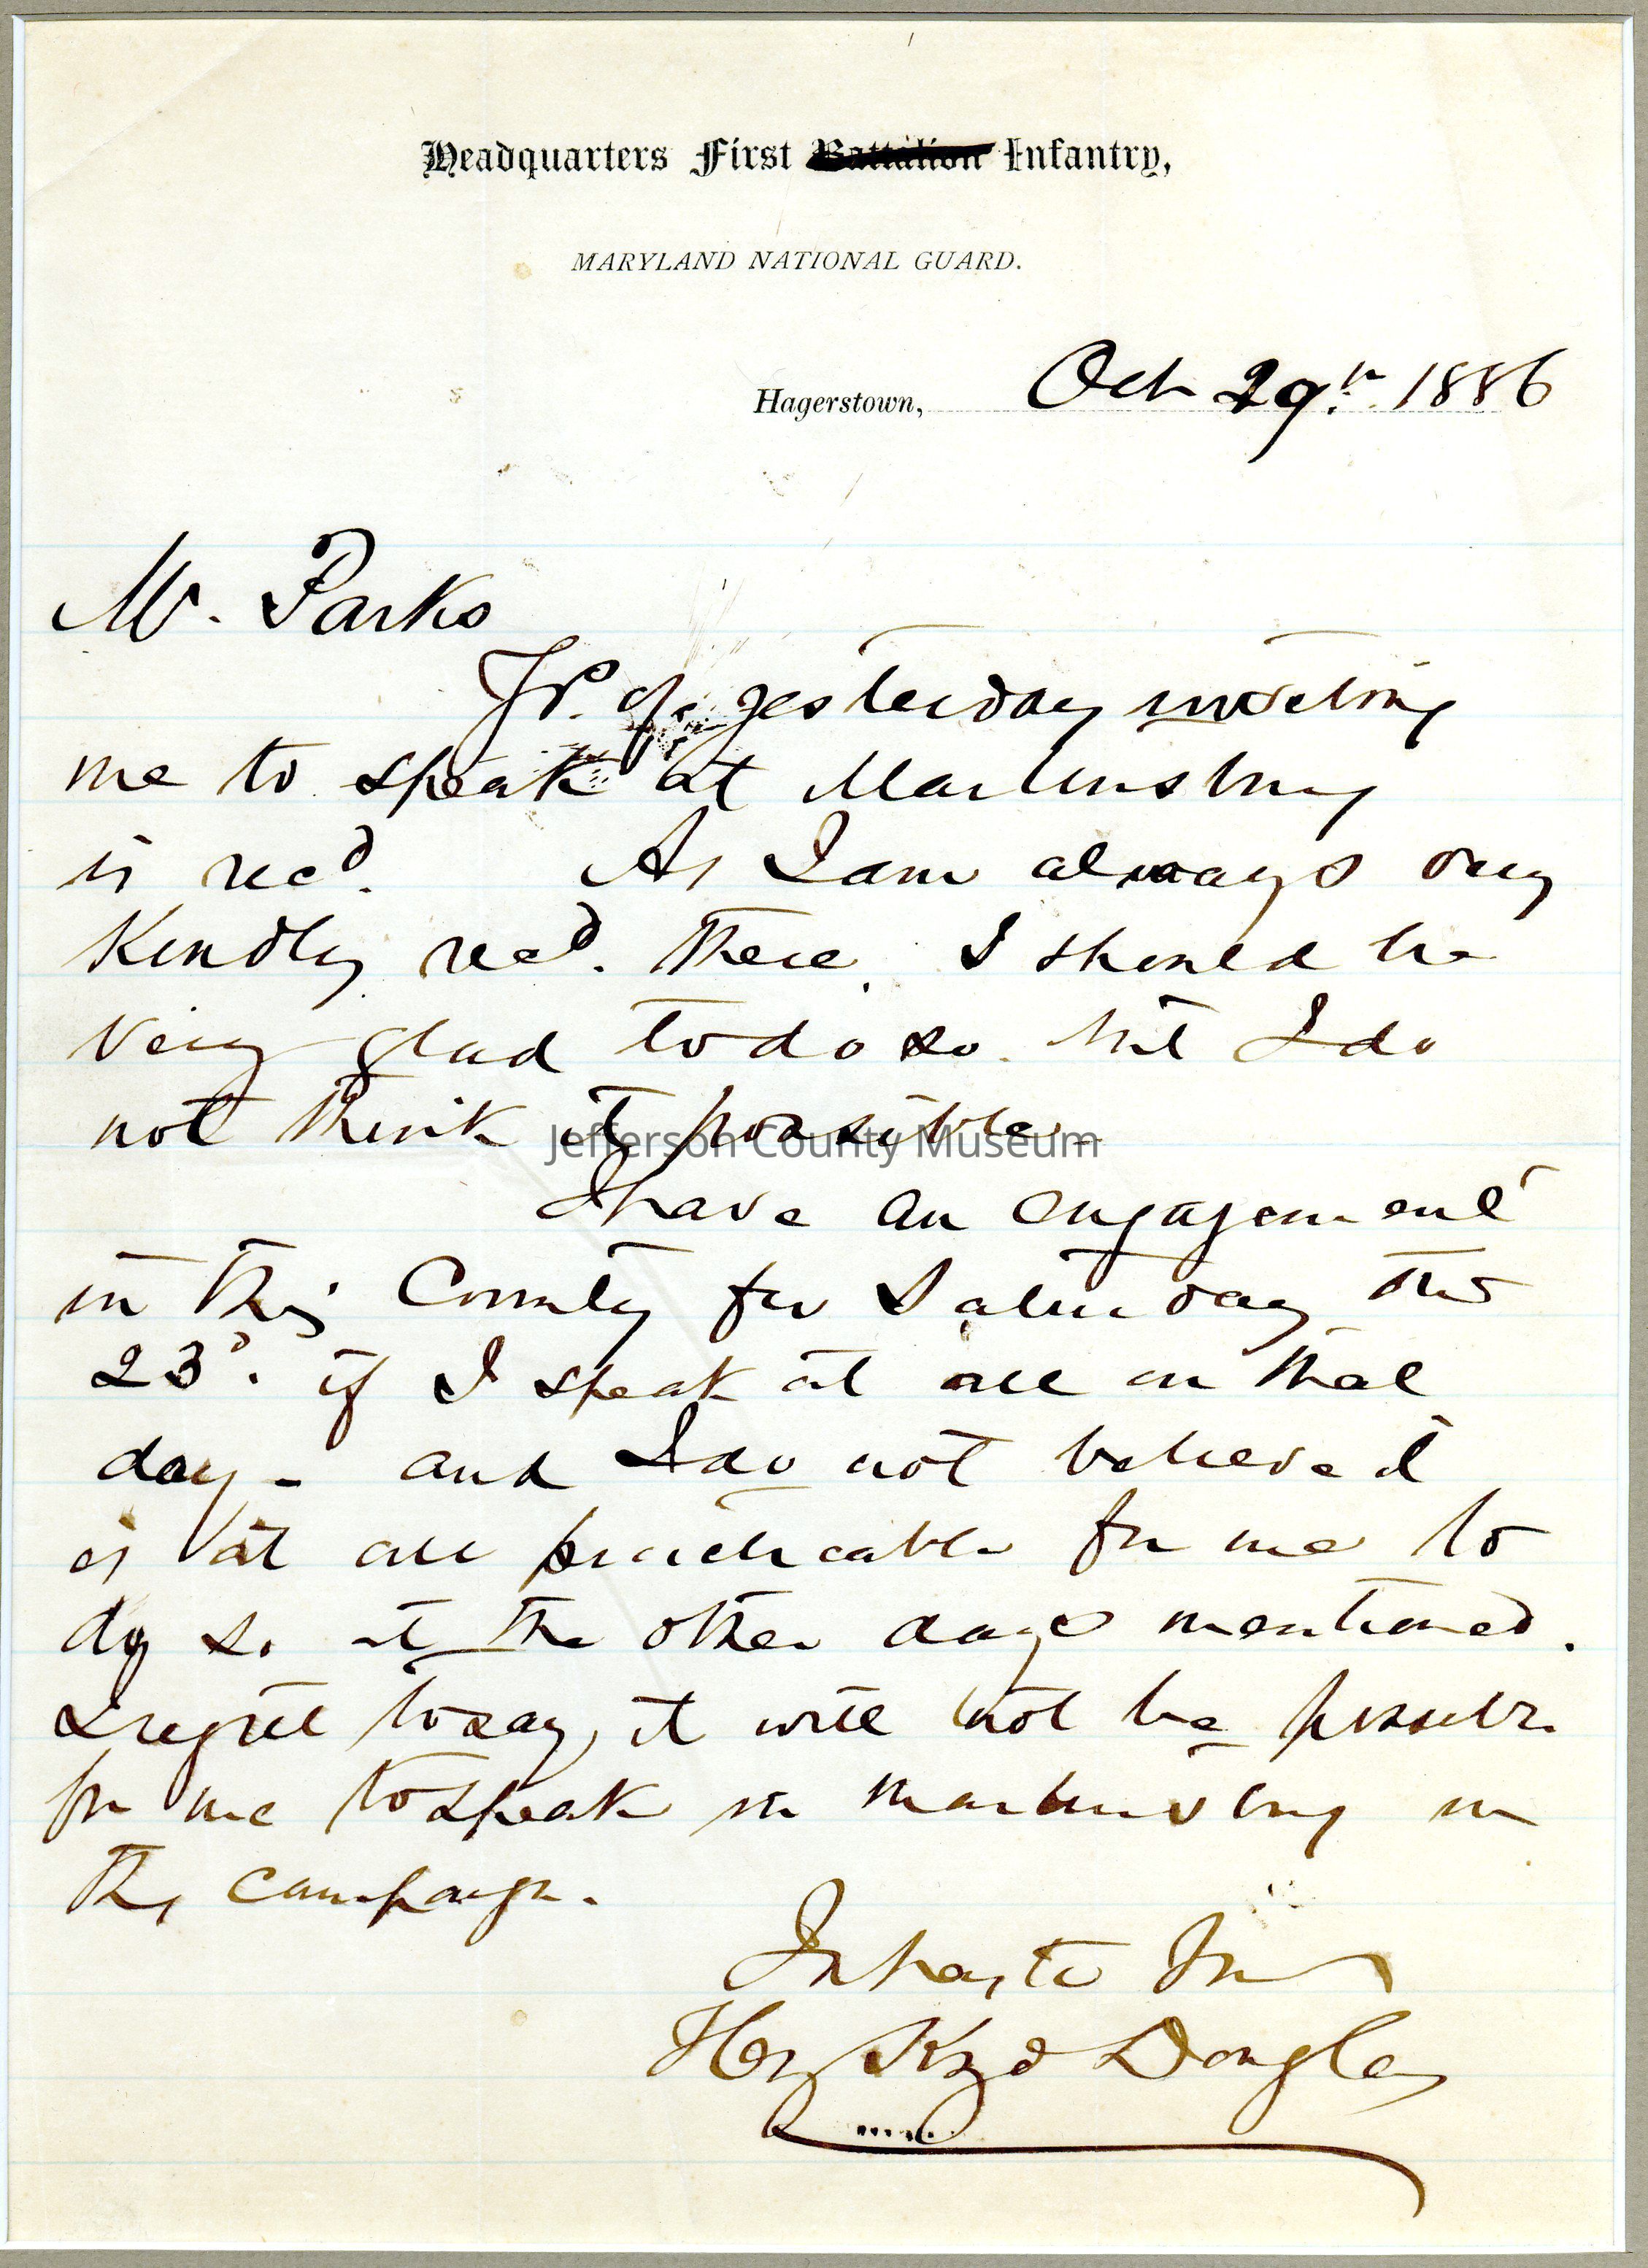 Headquarters First Battalion Infantry,
MARYLAND NATIONAL GUARD.
Hagerstown, Oct 29th 1886
Mr. Parks
Yr. of yesterday inviting
me to speak at Martinsburg
is recd. As I am always very
Kindly recd. there, I should be
very glad to do so. but I do
not think it possible.
Jefferson County Museum
I have an engagement
in this County for Saturday the
23d. if I speak at all on that
day - and I do not believe it
is at all practicable for me to
do so at the other days mentioned.
I regret to say, it will not be possible
for me to speak in Martinsburg in
this campaign.
In haste
Hy Kyd Douglas